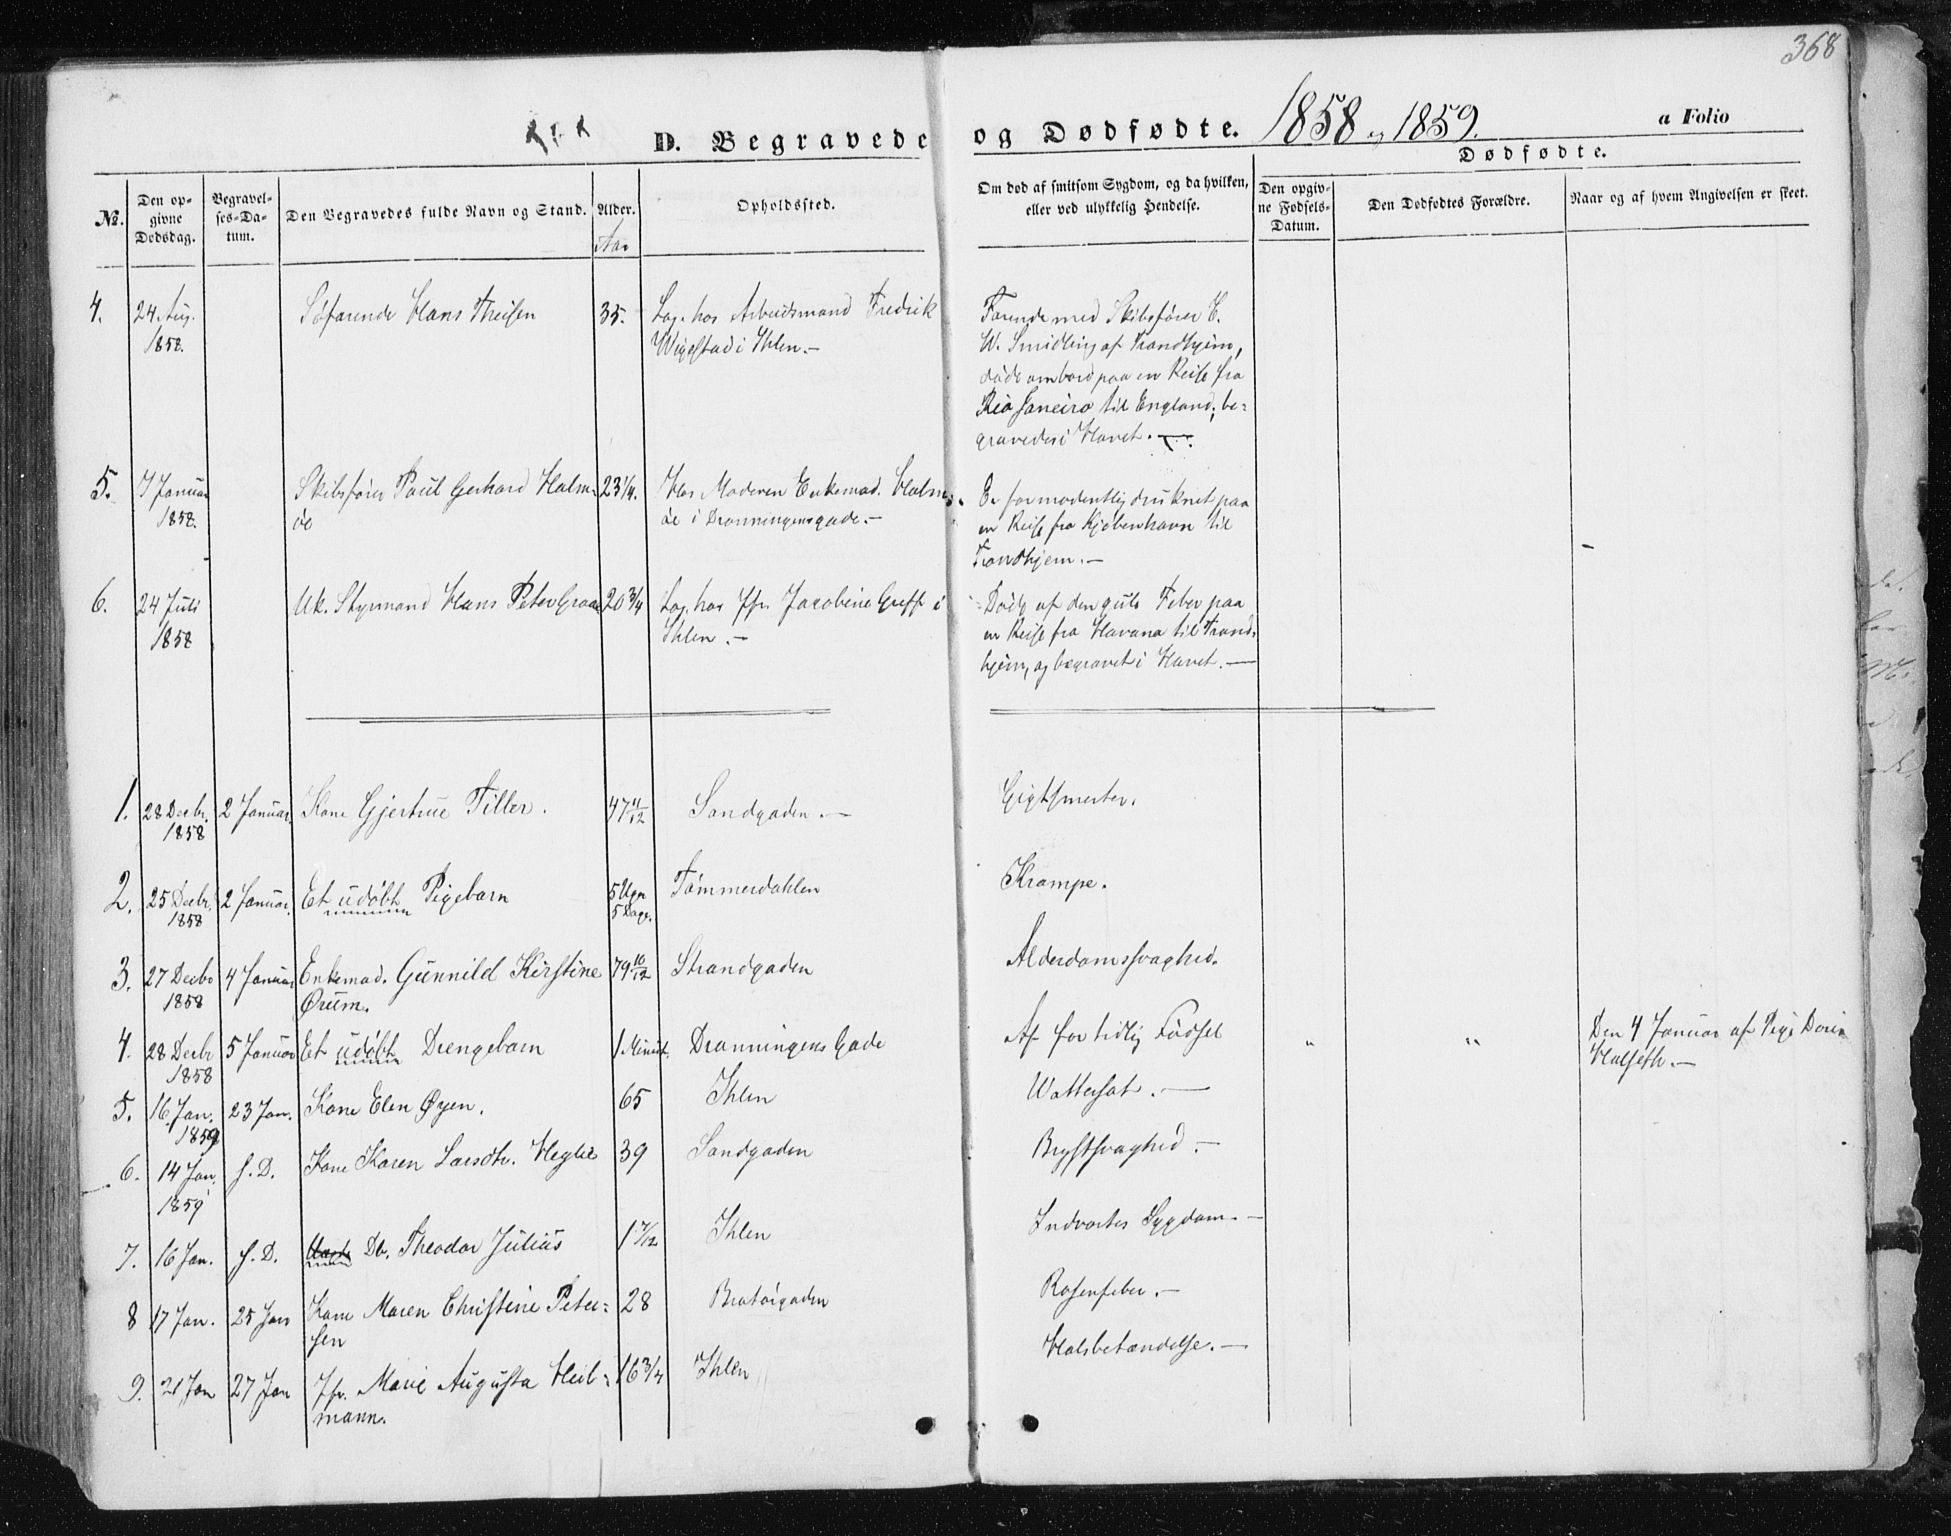 368
D. Begravede og Dødfødte. 1858 og 1859. a Folio
Dødfødte.
No. Den opgivne Dødsdag. Begravelses-Datum. Den Begravedes fulde Navn og Stand. Alder. Opholdssted. Om død af smitsom Sygdom, og da hvilken, eller ved ulykkelig Hendelse. Den opgivne Fødsels-Datum. Den Dødfødtes Forældre. Naar og af hvem Angivelsen er skeet.
Aar
4. 24 Aug. 1858. Søfarende Hans Theisen 35. Log. hos Arbeidsmand Fredrik
Wigestad i Ihlen.-
Farende med Skibsfører C.
W. Smidling af Trondhjem,
døde ombord paa en Reise fra
Rio Janeiro til England; be-
gravedes i Havet. -
5. 7 Januar 1858. Skibsfører Paul Gerhard Holm-
öe 23 1/4. Hos Moderen Enkemad. Holm-
öe i Dronningensgade.-
Er formodentlig druknet paa
en Reise fra Kjøbenhavn til
Trondhjem.-
6. 24 Juli 1858 Uk. Styrmand Hans Peter Graae 20 3/4 Log. hos Jfr. Jacobine Greff i
Ihlen.-
Døde af den gule Feber paa
en Reise fra Havana til Trond-
hjem, og begravet i Havet.-
1. 28 Decbr. 1858 2 Januar. Kone Gjertrue Tiller. 47 11/12 Sandgaden.- Gigtsmerter.
2. 25 Decbr. 1858 2 Januar. Et udøbt Pigebarn 5 Ugr 5 Dage. Tømmerdahlen Krampe.
3. 27 Decbr 1858 4 Januar Enkemad. Gunnild Kirstine
Ørum. 79 10/12 Strandgaden Alderdomssvaghed.
4. 28 Decbr 1858 5 Januar Et udøbt Drengebarn 1 Minut. Dronningens Gade Af for tidlig Fødsel " " Den 4 Januar af Pige Dorin
Halseth.-
5. 16 Jan. 1859 23 Jan. Kone Elen Øyen. 65 Ihlen Wattersot.-
6. 14 Jan. 1859 s. D. Kone Karen Larsdtr. Heglie 39 Sandgaden Brystsvaghed.-
7. 16 Jan. s. D. Db. Theodor Julius 1 7/12 Ihlen Indvortes Sygdom.-
8 17 Jan. 25 Jan Kone Maren Christine Peter-
sen 28 Bratørgaden Rosenfeber.-
9. 21 Jan 27 Jan Jfr. Marie Augusta Heil-
mann. 16 3/4 Ihlen Halsbetændelse.-